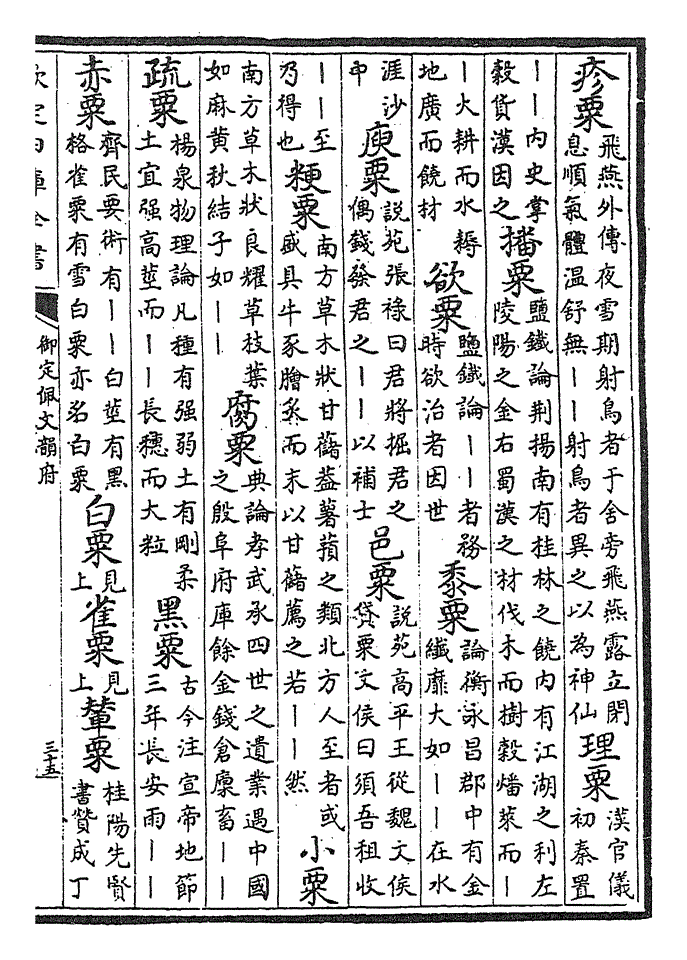 疹粟飛燕外傳夜雪期射鳥者于舍旁飛燕露立閉息順氣體温舒無丨丨射鳥者異之以為神仙理粟漢官儀初秦置
丨丨内史掌穀貨漢因之播粟鹽鐵論荆揚南有桂林之饒内有江湖之利左陵陽之金右蜀漢之材伐木而樹穀燔萊而丨
丨火耕而水耨地廣而饒材欲粟鹽鐵論丨丨者務時欲治者因世黍粟論衡永昌郡中有金纖靡大如丨丨在水
涯沙中庾粟説苑張禄曰君將掘君之偶錢發君之丨丨以補士邑粟説苑高平王從魏文侯貸粟文侯曰須吾租收
丨丨至乃得也粳粟南方草木狀甘藷蓋薯蕷之類北方人至者或盛具牛豕膾炙而末以甘藷薦之若丨丨然小粟
南方草木狀良耀草枝葉如麻黄秋結子如丨丨腐粟典論孝武承四世之遺業遇中國之殷阜府庫餘金錢倉廩畜丨丨
疏粟楊泉物理論凡種有强弱土有剛柔土宜强高莖而丨丨長穗而大粒黑粟古今注宣帝地節三年長安雨丨丨
赤粟齊民要術有丨丨白莖有黑格雀粟有雪白粟亦名白粟白粟見上雀粟見上輦粟桂陽先賢書贊成丁
欽定四庫全書
御定佩文韻府
三十五